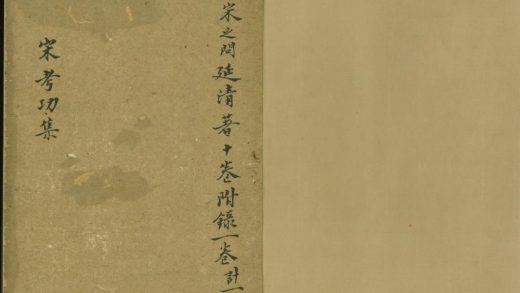 宋之問延清著十卷附錄一卷計
宋考功集